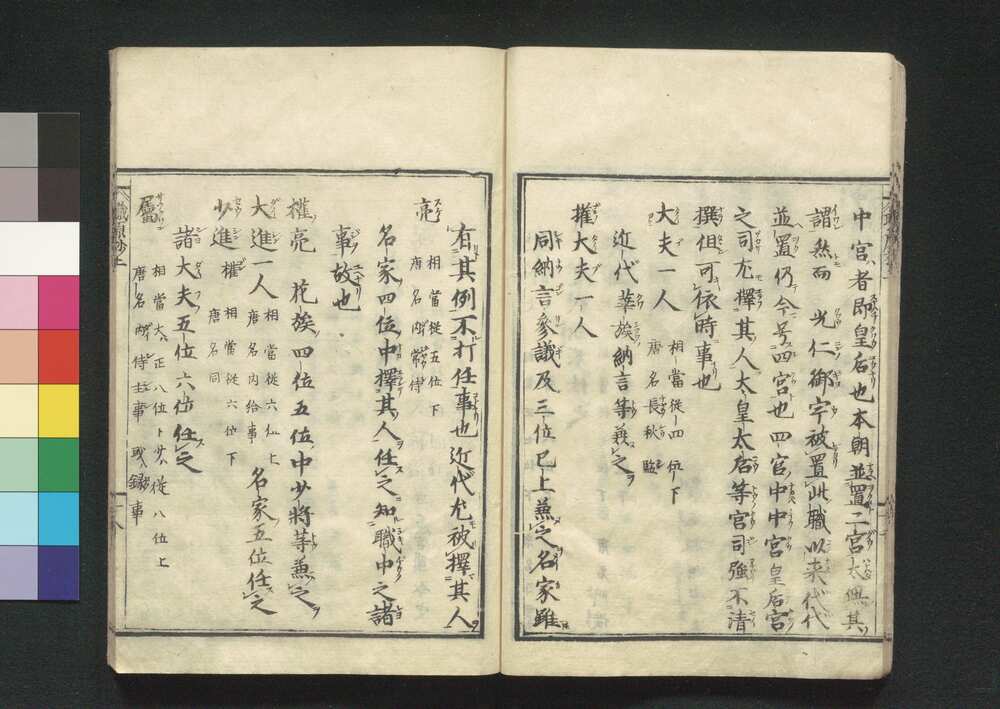 中宮者即皇后也本朝並置二宮太無其
謂然而光仁御宇被置此職以来代代
並置仍今号四宮也四官中中宮皇后宮
之司尤擇其人太皇太后等官司強不清
撰但可依時事也
大夫一人 相當從四位下
唐名長秋監
近代華族納言等兼之
權大夫一人
同納言參議及三位已上兼之名家雖
有其例不打任事也近代尤被擇其人
亮 相當從五位下
唐名内常侍
名家四位中擇其人任之知職中之諸
事故也
權亮 花族四位五位中少將等兼之
大進一人 相當從六位上
唐名内給事 名家五位任之
少進權 相當從六位下
唐名同
諸大夫五位六位任之
屬 相當大正八位下少從八位上
唐名内侍主事 録事
職原抄上